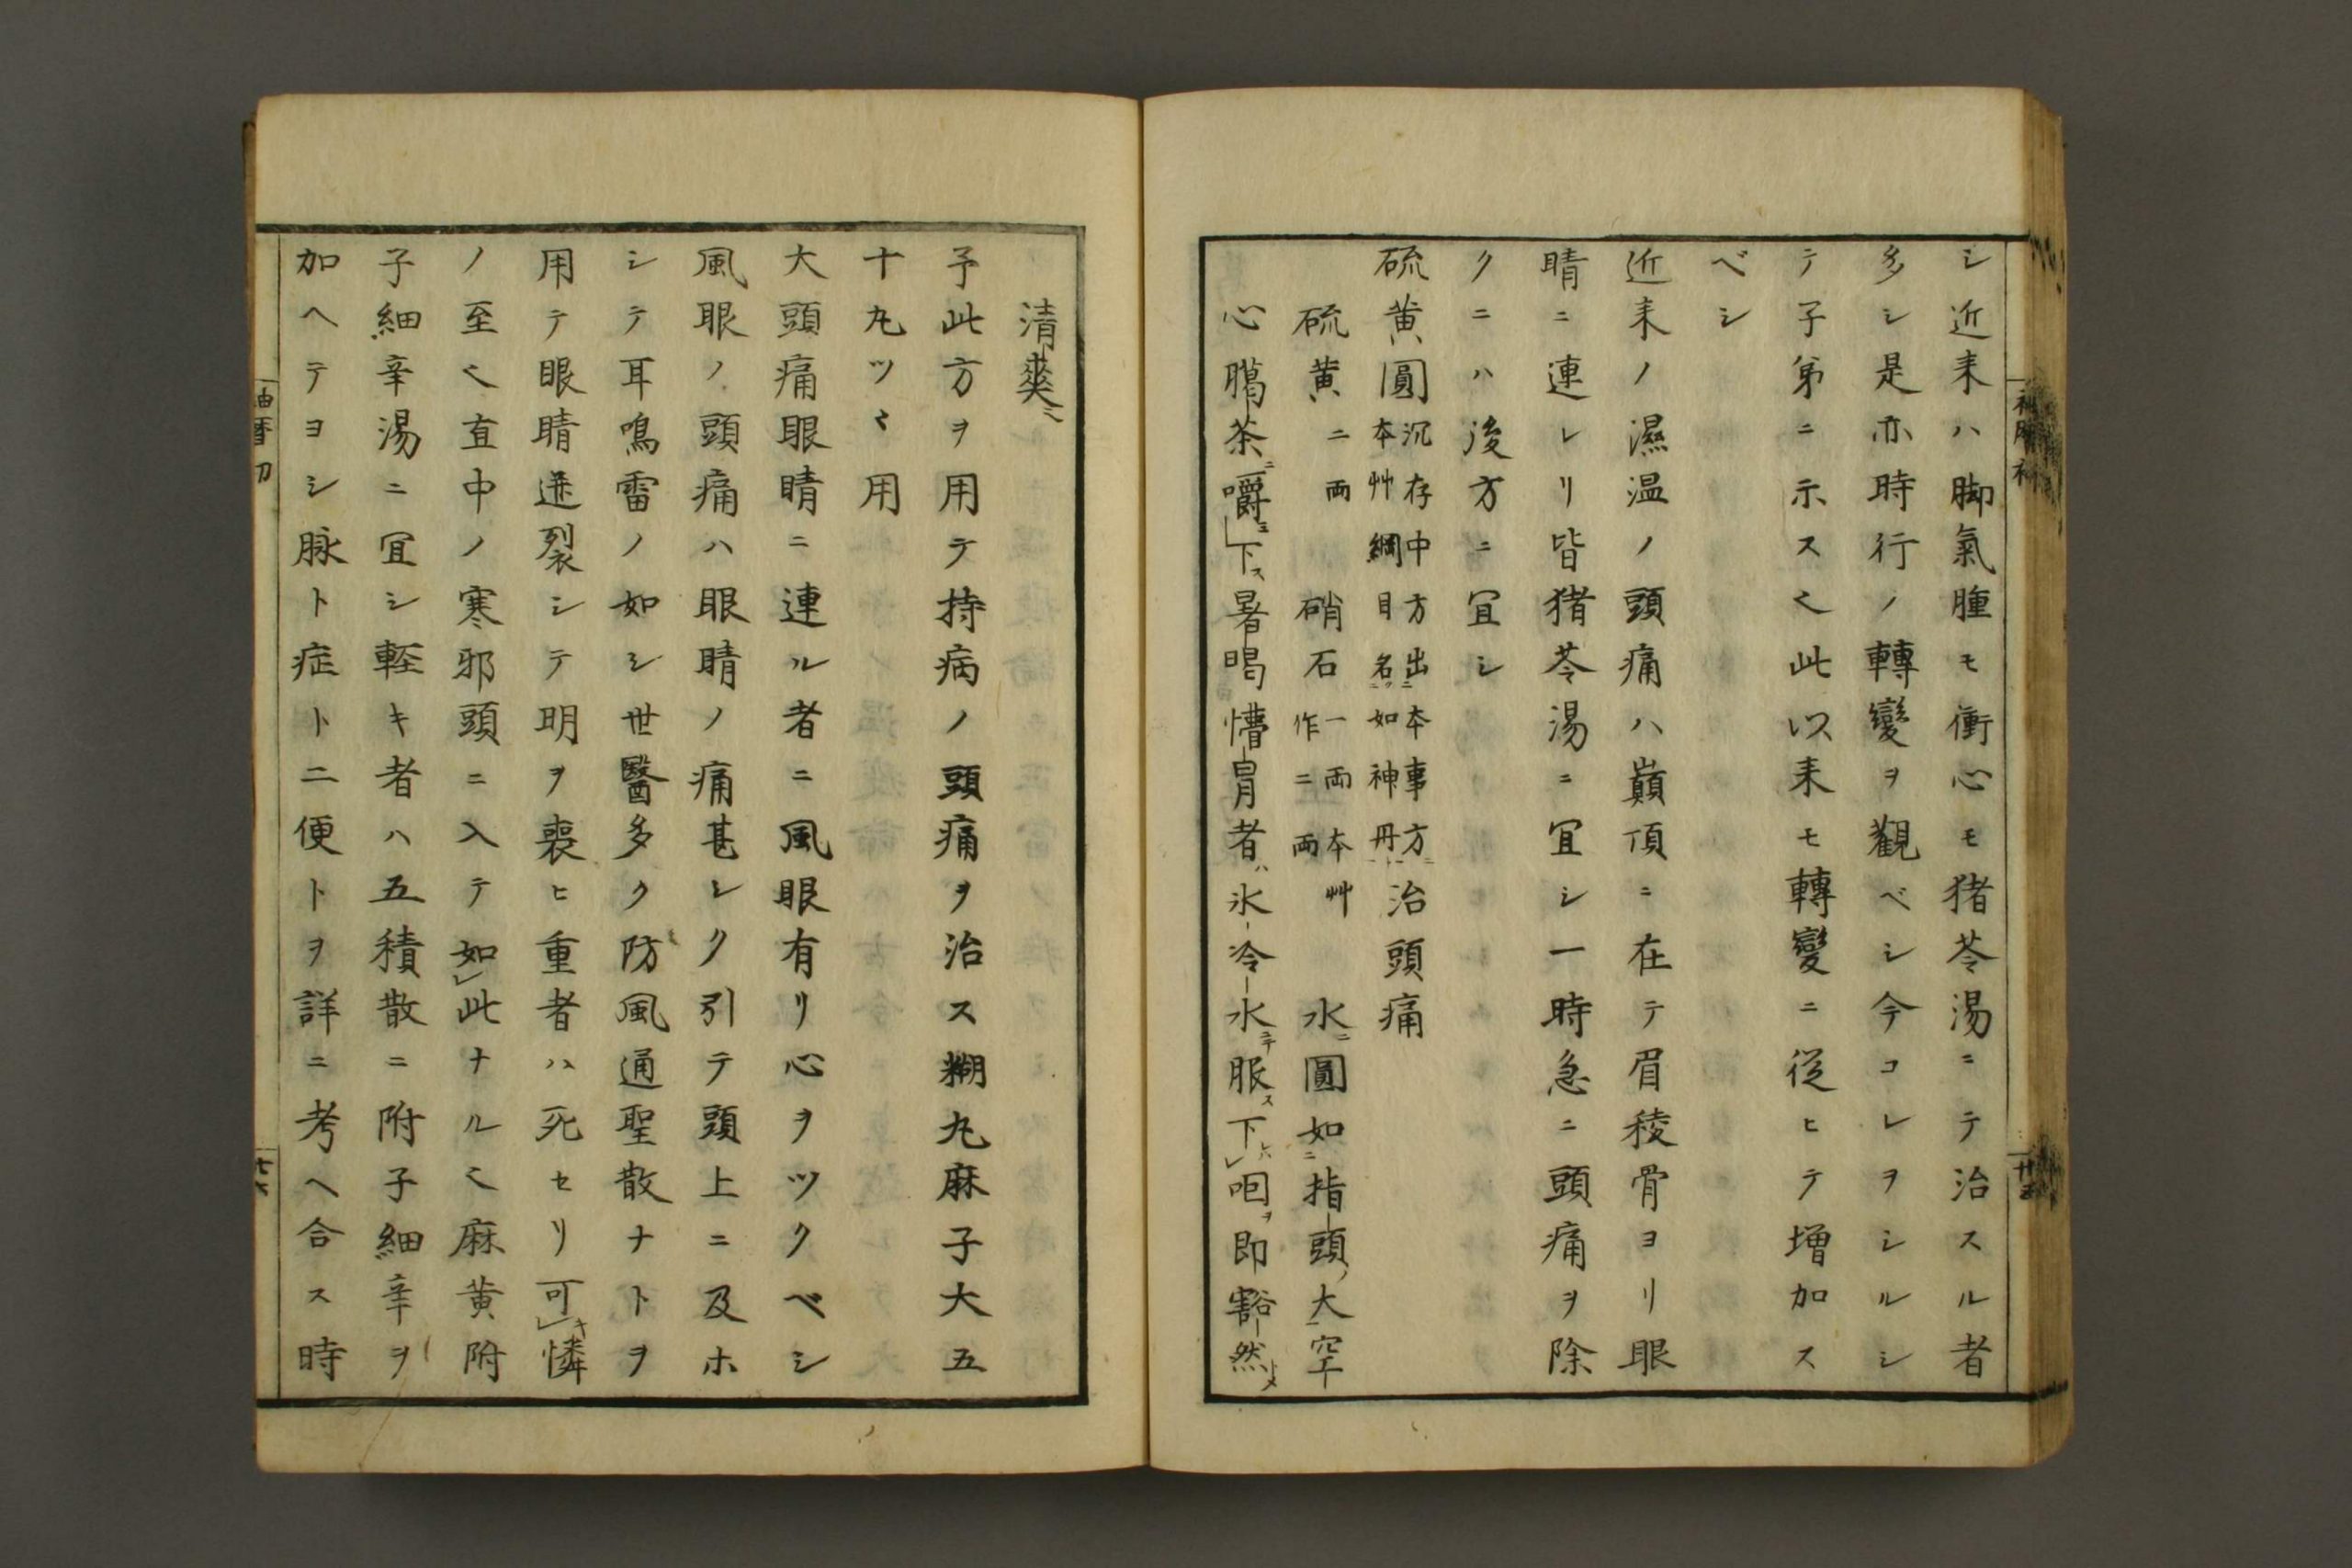 シ近来ハ脚氣腫モ衝心モ猪苓湯ニテ治スル者
多シ是亦時行ノ轉變ヲ觀ベシ今コレヲシルシ
テ子弟ニ示ス〱此以来モ轉變ニ従ヒテ増加ス
ベシ
近来ノ濕温ノ頭痛ハ巓頂ニ在テ眉稜骨ヨリ眼
睛ニ連レリ皆猪苓湯ニ冝シ一時急ニ頭痛ヲ除
クニハ後方ニ冝シ
硫黄圓沉存中方出ニ本事方ニ本艸綱目名ニツ如神丹ト一治頭痛
硫黄二両　硝石一両本艸作二両　水ニ圓如ニ指頭ノ大一空
心臈茶ニ嚼ミ下ス暑暍懵冒者ハ氷冷水ニテ服ス下レハ咽ヲ即豁然トメ
清爽ニ
予此方ヲ用テ持病ノ頭痛ヲ治ス糊丸麻子大五
十丸ツヽ用
大頭痛眼睛ニ連ル者ニ風眼有リ心ヲツクベシ
風眼ノ頭痛ハ眼睛ノ痛甚シク引テ頭上ニ及ホ
シテ耳鳴雷ノ如シ世醫多ク防風通聖散ナトヲ
用テ眼睛迸裂シテ明ヲ喪ヒ重者ハ死セリ可レキ憐
ノ至〱直中ノ寒邪頭ニ入テ如レ此ナル〱麻黄附
子細辛湯ニ冝シ軽キ者ハ五積散ニ附子細辛ヲ
加ヘテヨシ脉ト症ト二便トヲ詳ニ考ヘ合ス時